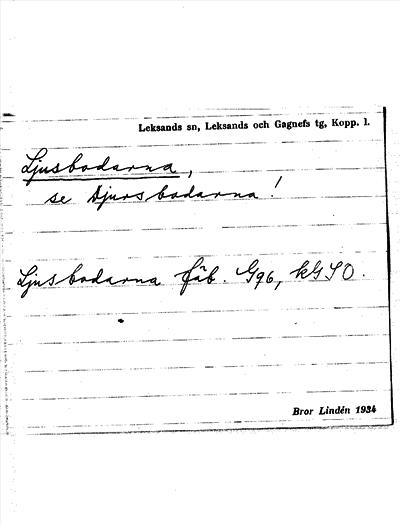 Leksands sn, Leksands och Gagnefs tg, Kopp. l.
Ljusbodarna,
se Djursbodarna!
Ljusbodarna fäb. G96, kGSO.
Bror Lindén 1934